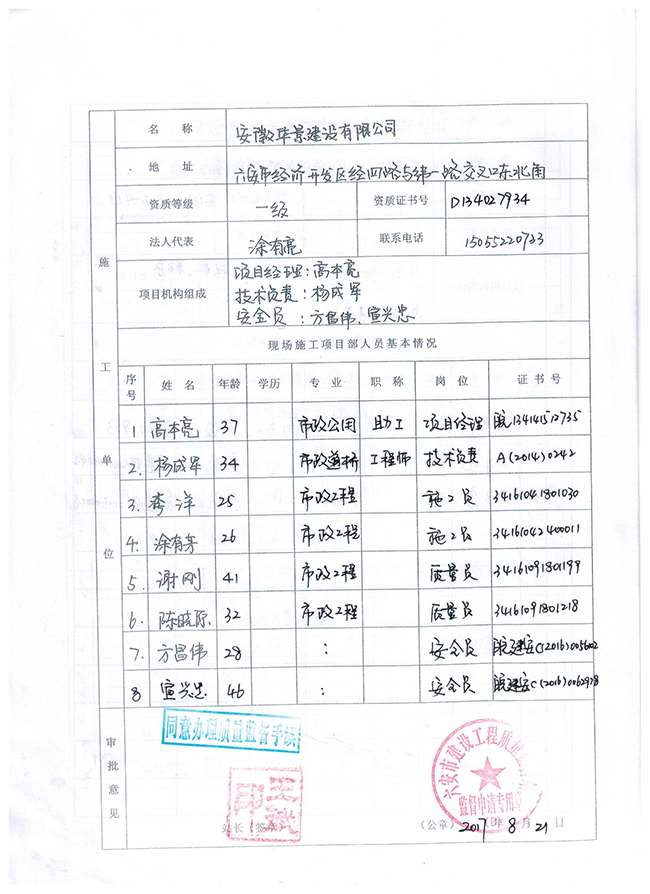 名 称 安徽华景建设有限公司
地 址 六安市经济开发区经四路与纬一路交叉口东北角
资质等级 一级 资质证书号 D134027934
法人代表 涂有亮 联系电话 15055220723
项目机构组成 项目经理：高本亮
技术负责：杨成军
安全员：方昌伟、宣兴忠
施工单位
现场施工项目部人员基本情况
序号 姓名 年龄 学历 专业 职称 岗位 证书号
1 高本亮 37 市政公用 助工 项目经理 皖134141512735
2. 杨成军 34 市政道桥 工程师 技术负责 A(2014)0242
3. 李洋 25 市政工程 施工员 34161041801030
4. 涂有 26 市政工程 施工员 34161042400011
5. 谢刚 41 市政工程 质量员 34161091801199
6. 陈晓原 32 市政工程 质量员 34161091801218
7. 方昌伟 28 : 安全员 皖建安C(2016)0056002
8 宣兴忠 46 : 安全员 皖建安C(2016)0062978
审批意见
同意办理质量监督手续
六安市建设工程质量
监督申请专用
站长（签章）
（公章） 2017年8月21日